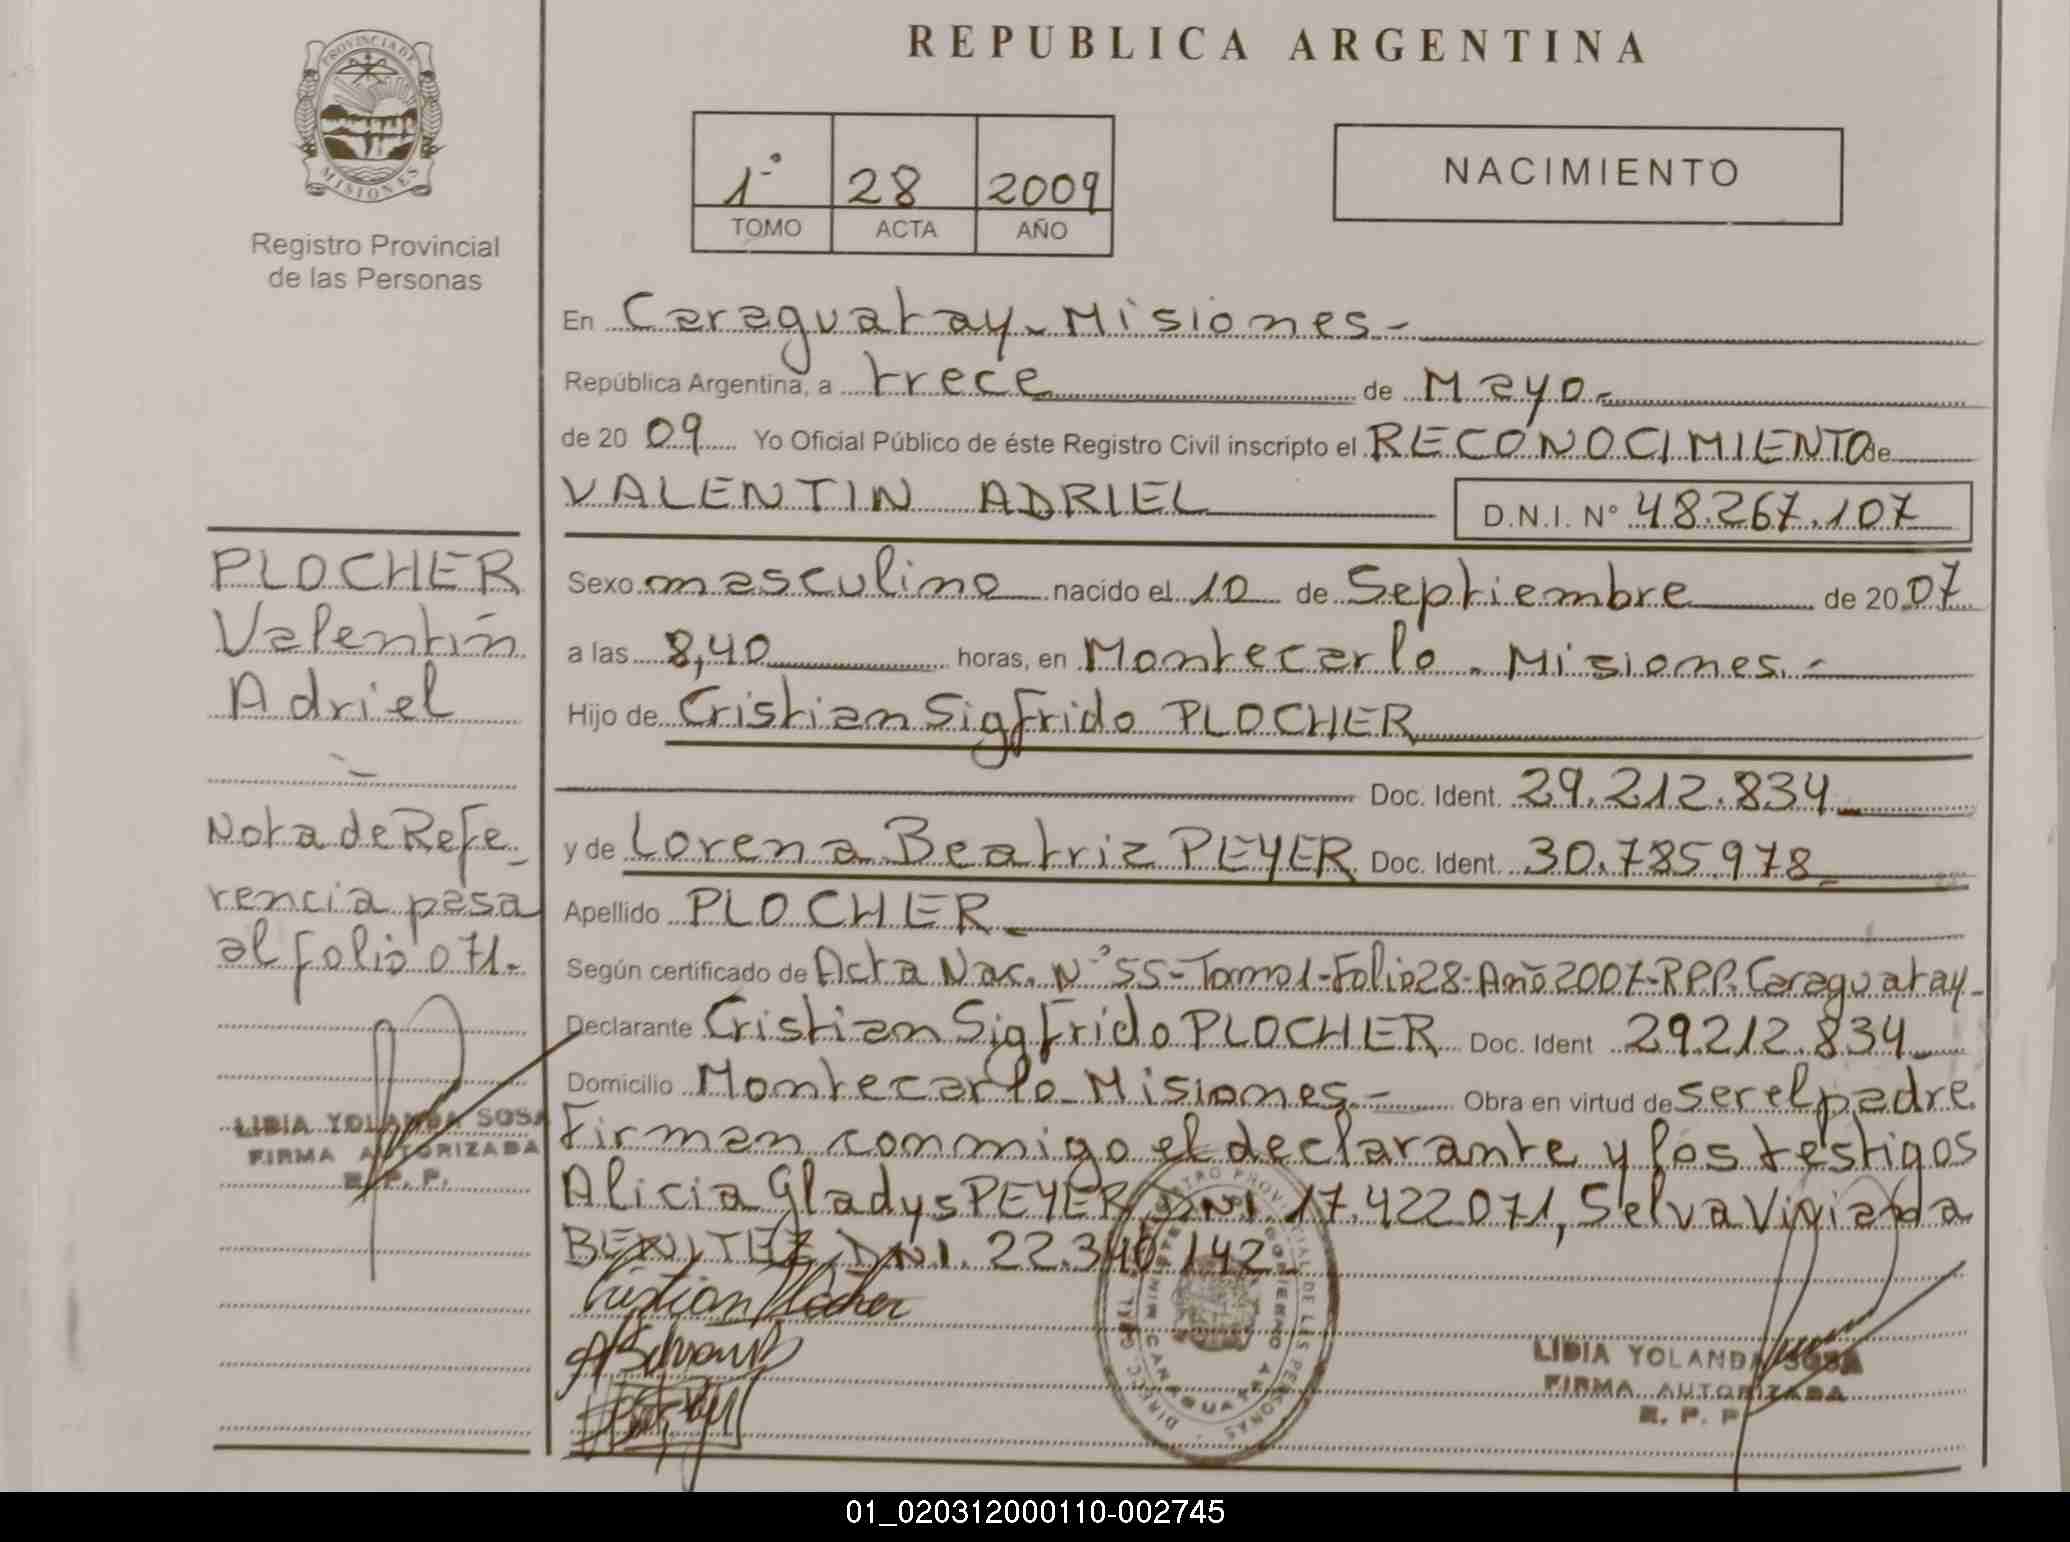 REPUBLICA ARGENTINA
PROVINCIA DE
MISIONES
Registro Provincial
de las Personas
1° 28 2009
TOMO ACTA AÑO
NACIMIENTO
En Caraguatay - Misiones -
República Argentina, a trece de Mayo -
de 20 09 Yo Oficial Público de éste Registro Civil inscripto el RECONOCIMIENTO de
VALENTIN ADRIEL D.N.I. N° 48.267.107
Sexo masculino nacido el 10 de Septiembre de 20 07
a las 8,40 horas, en Montecarlo - Misiones. -
Hijo de Cristian Sigfrido PLOCHER
Doc. Ident. 29.212.834
y de Lorena Beatriz PEYER Doc. Ident. 30.785.978
Apellido PLOCHER
Según certificado de Acta Nac. N° 55-Tomo1-Folio28-Año2007-RPP. Caraguatay-
Declarante Cristian Sigfrido PLOCHER Doc. Ident 29.212.834
Domicilio Montecarlo - Misiones. - Obra en virtud de ser el padre.
Firman conmigo el declarante y los testigos
Alicia Gladys PEYER DNI. 17.422.071, Selva Viviana
BENITEZ, DNI. 22.340.142
Cristian Plocher
LIDIA YOLANDA SOSA
FIRMA AUTORIZADA
R. P. P.
PLOCHER
Valentín
Adriel
Nota de Refe-
rencia pasa
al folio 071.
LIDIA YOLANDA SOSA
FIRMA AUTORIZADA
R. P. P.
01_020312000110-002745